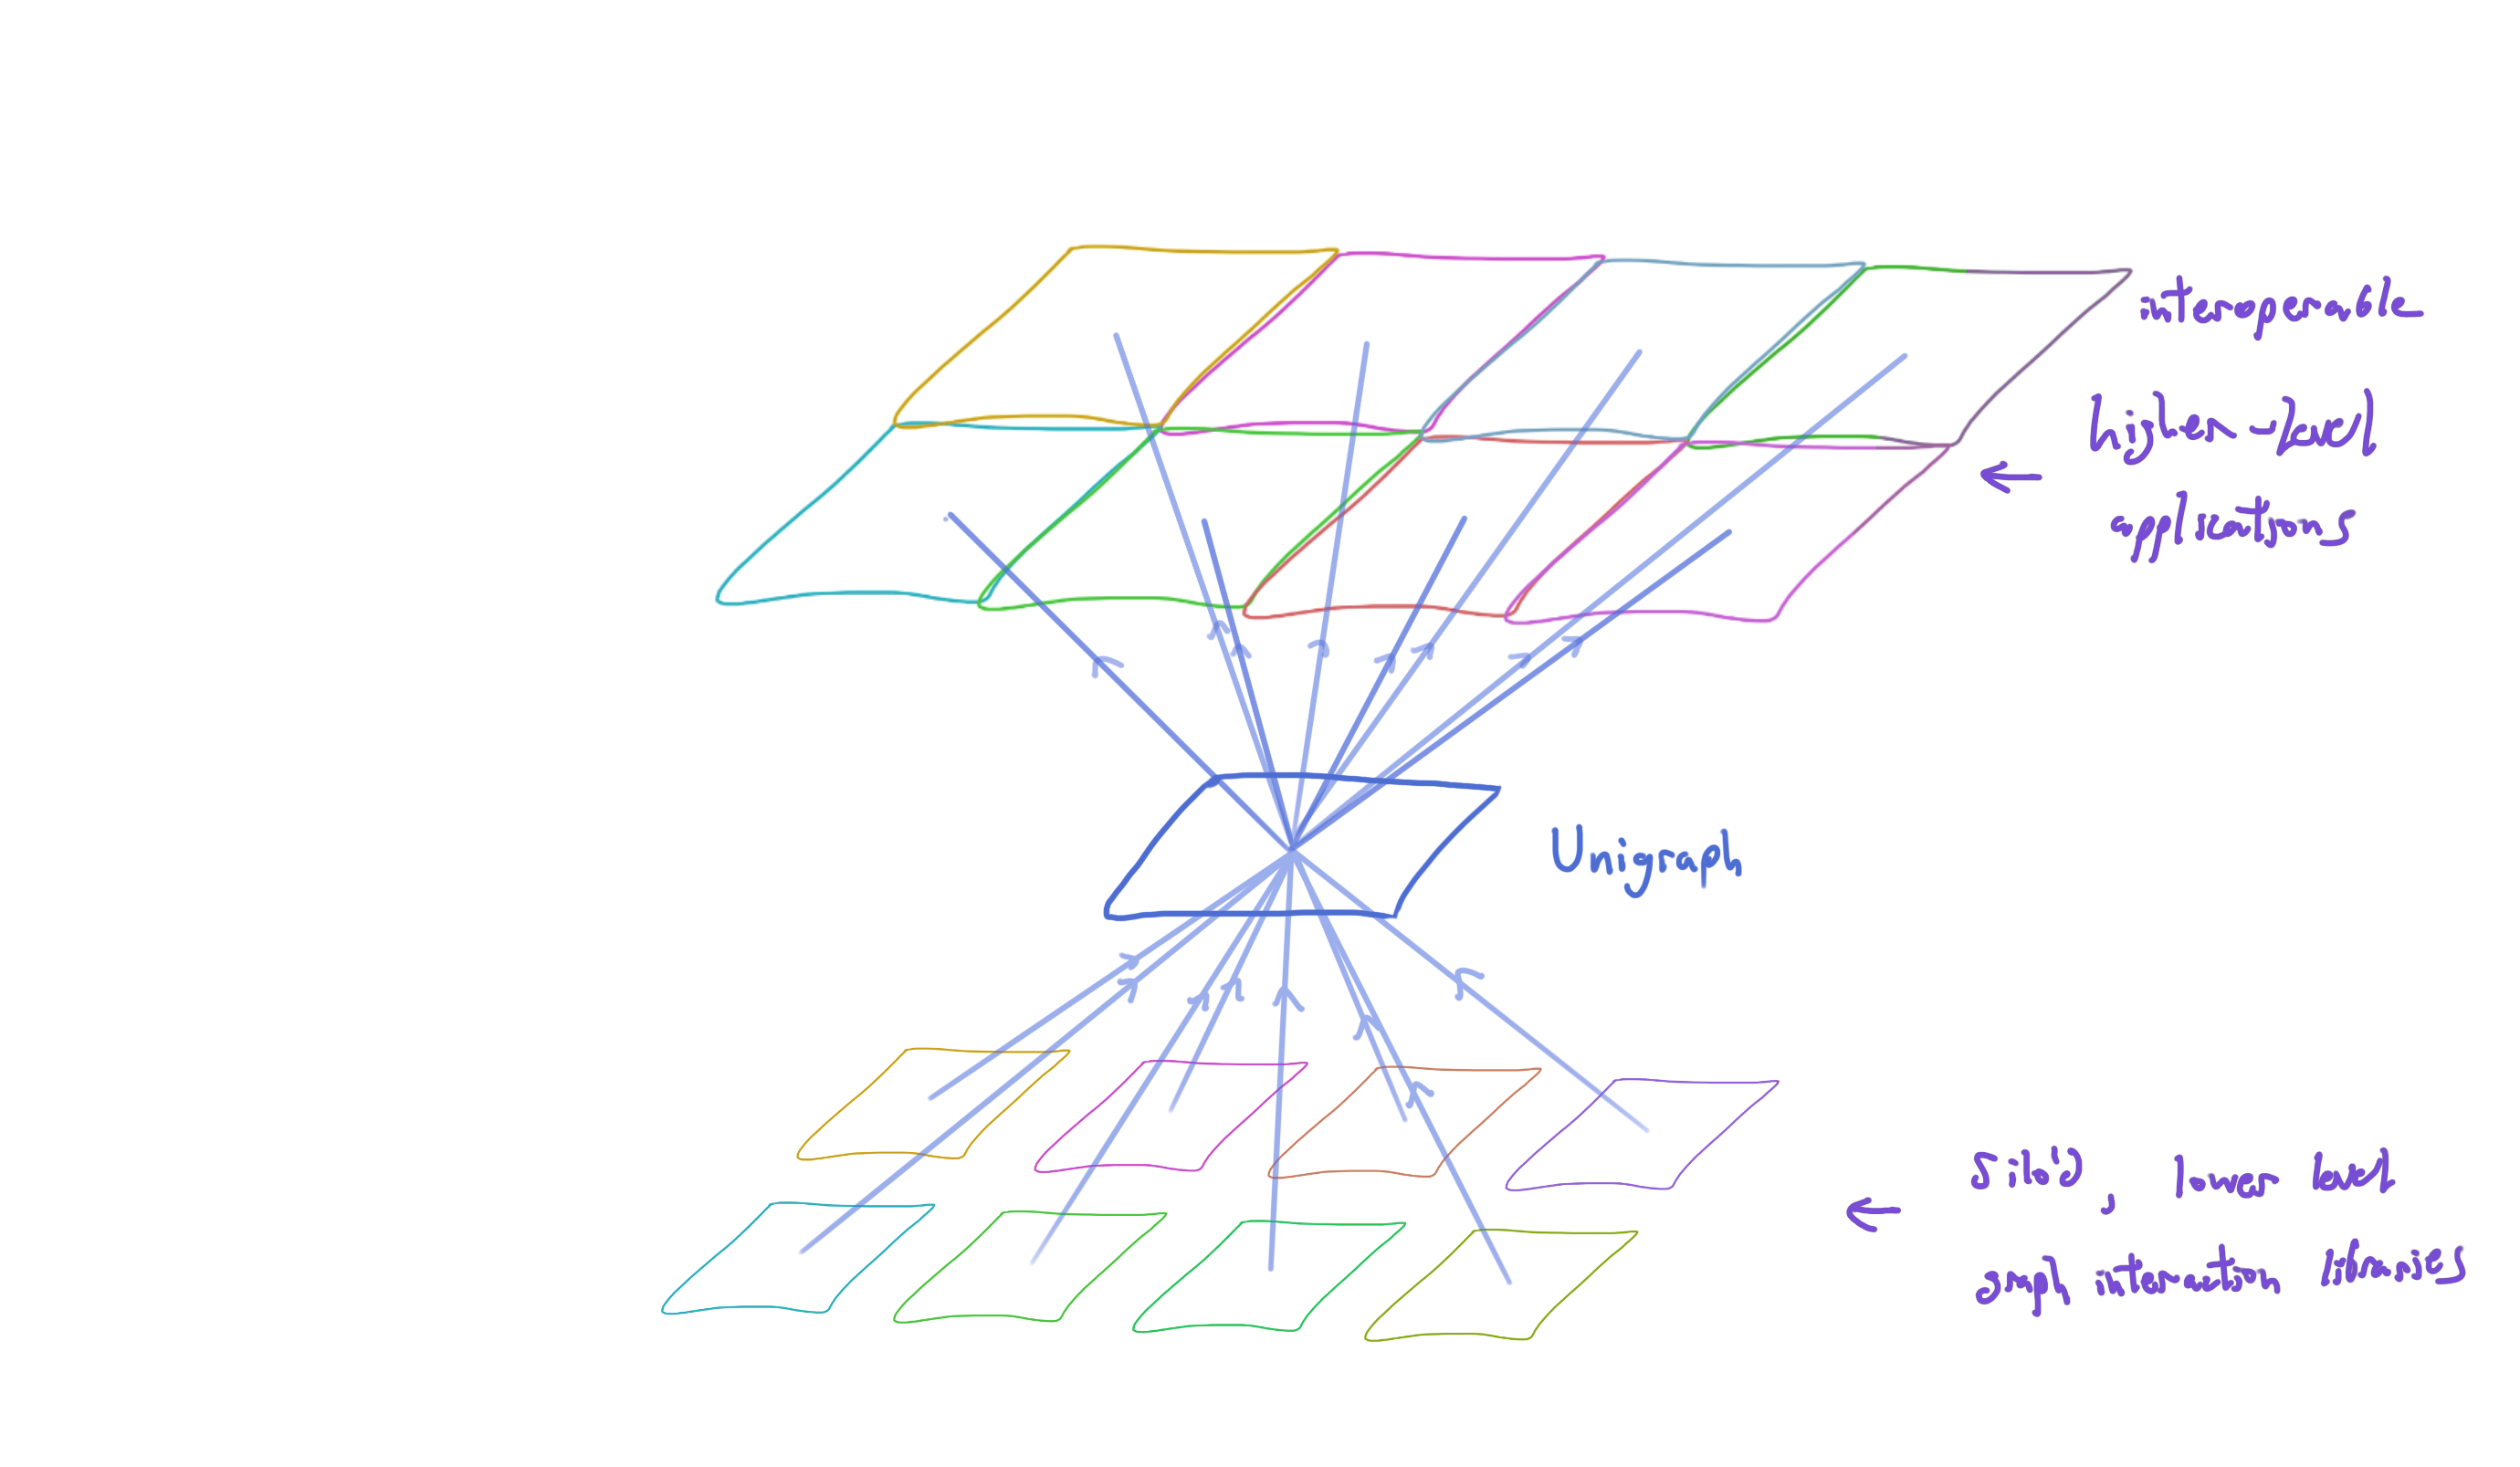 interoperable
higher-level
applications
Unigraph
Silo'd, lower level
graph interaction libraries